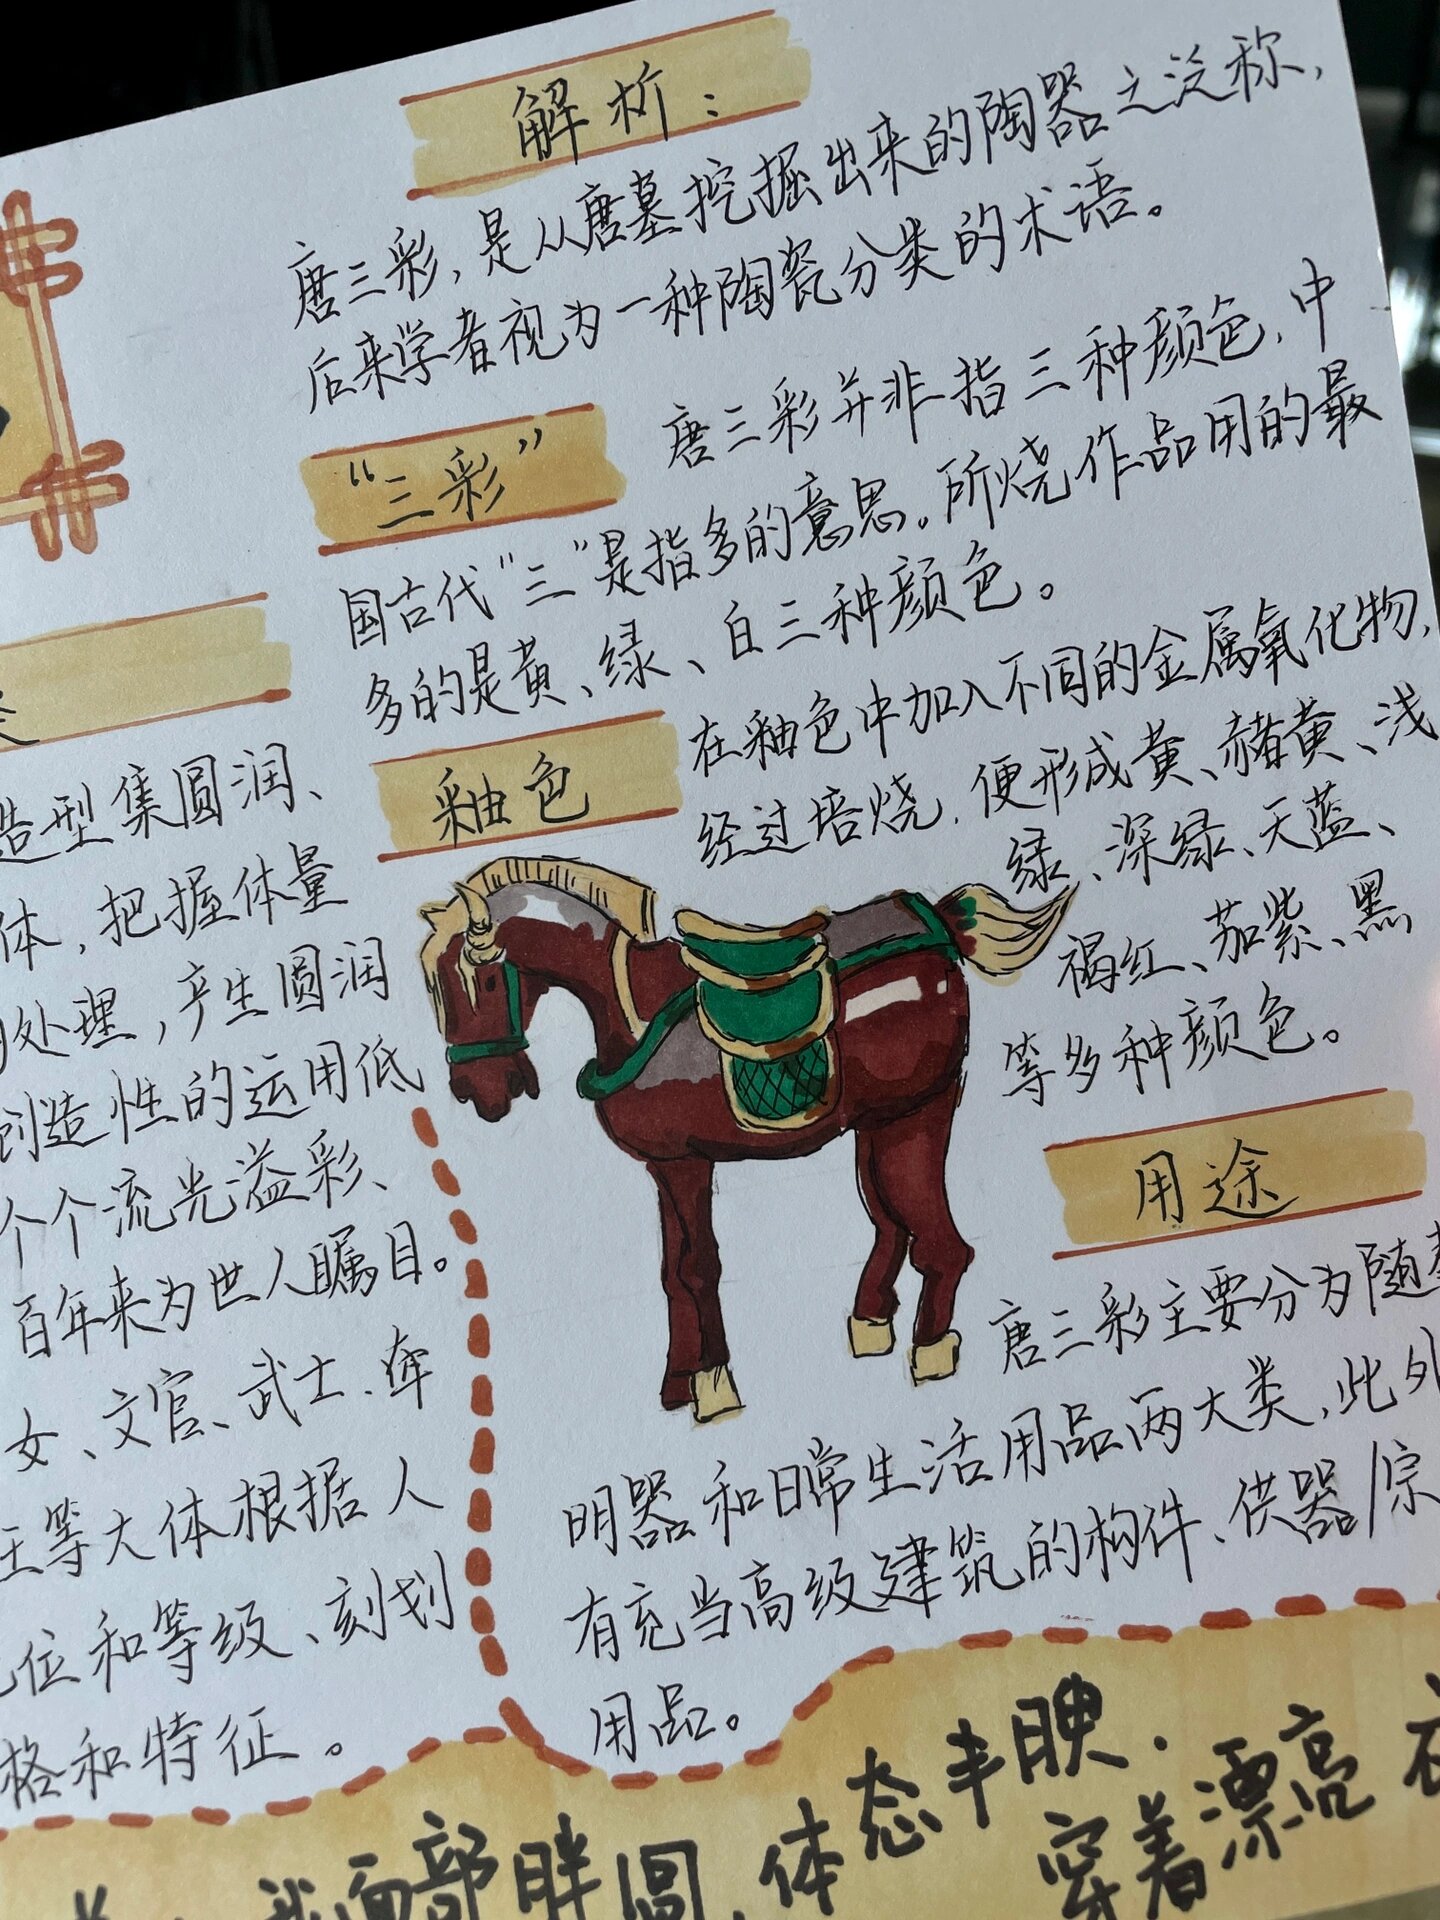 解析：
唐三彩，是从唐墓挖掘出来的陶器之泛称，
后来学者视为一种陶瓷分类的术语。
“三彩”
唐三彩并非指三种颜色，中
国古代“三”是指多的意思。所烧作品用的最
多的是黄、绿、白三种颜色。
釉色
在釉色中加入不同的金属氧化物，
经过培烧，便形成黄、赭黄、浅
绿、深绿、天蓝、
褐红、茄紫、黑
等多种颜色。
用途
唐三彩主要分为随
明器和日常生活用品两大类，此外
有充当高级建筑的构件、供器/宗
用品。
造型集圆润、
体，把握体量
处理，产生圆润
创造性的运用低
个个流光溢彩、
百年来为世人瞩目。
女、文官、武士、牵
王等大体根据人
位和等级、刻划
格和特征。
面部胖圆，体态丰腴．
穿着漂亮